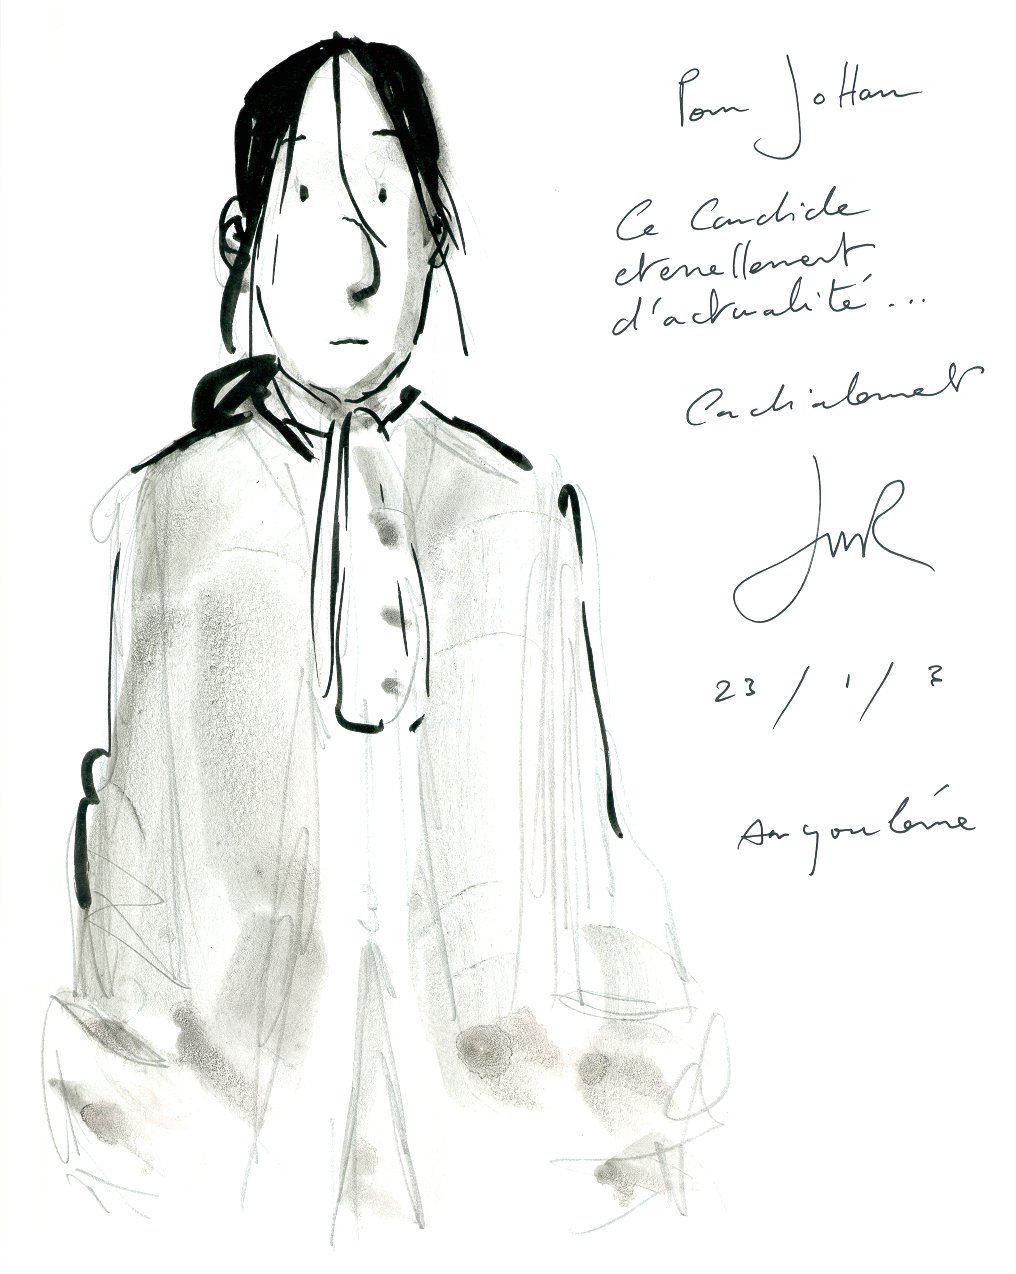 Pour JoHan
Ce Candide
eternellement
d'actualité...
Cachalement
23 / 1 / 3
Angoulême